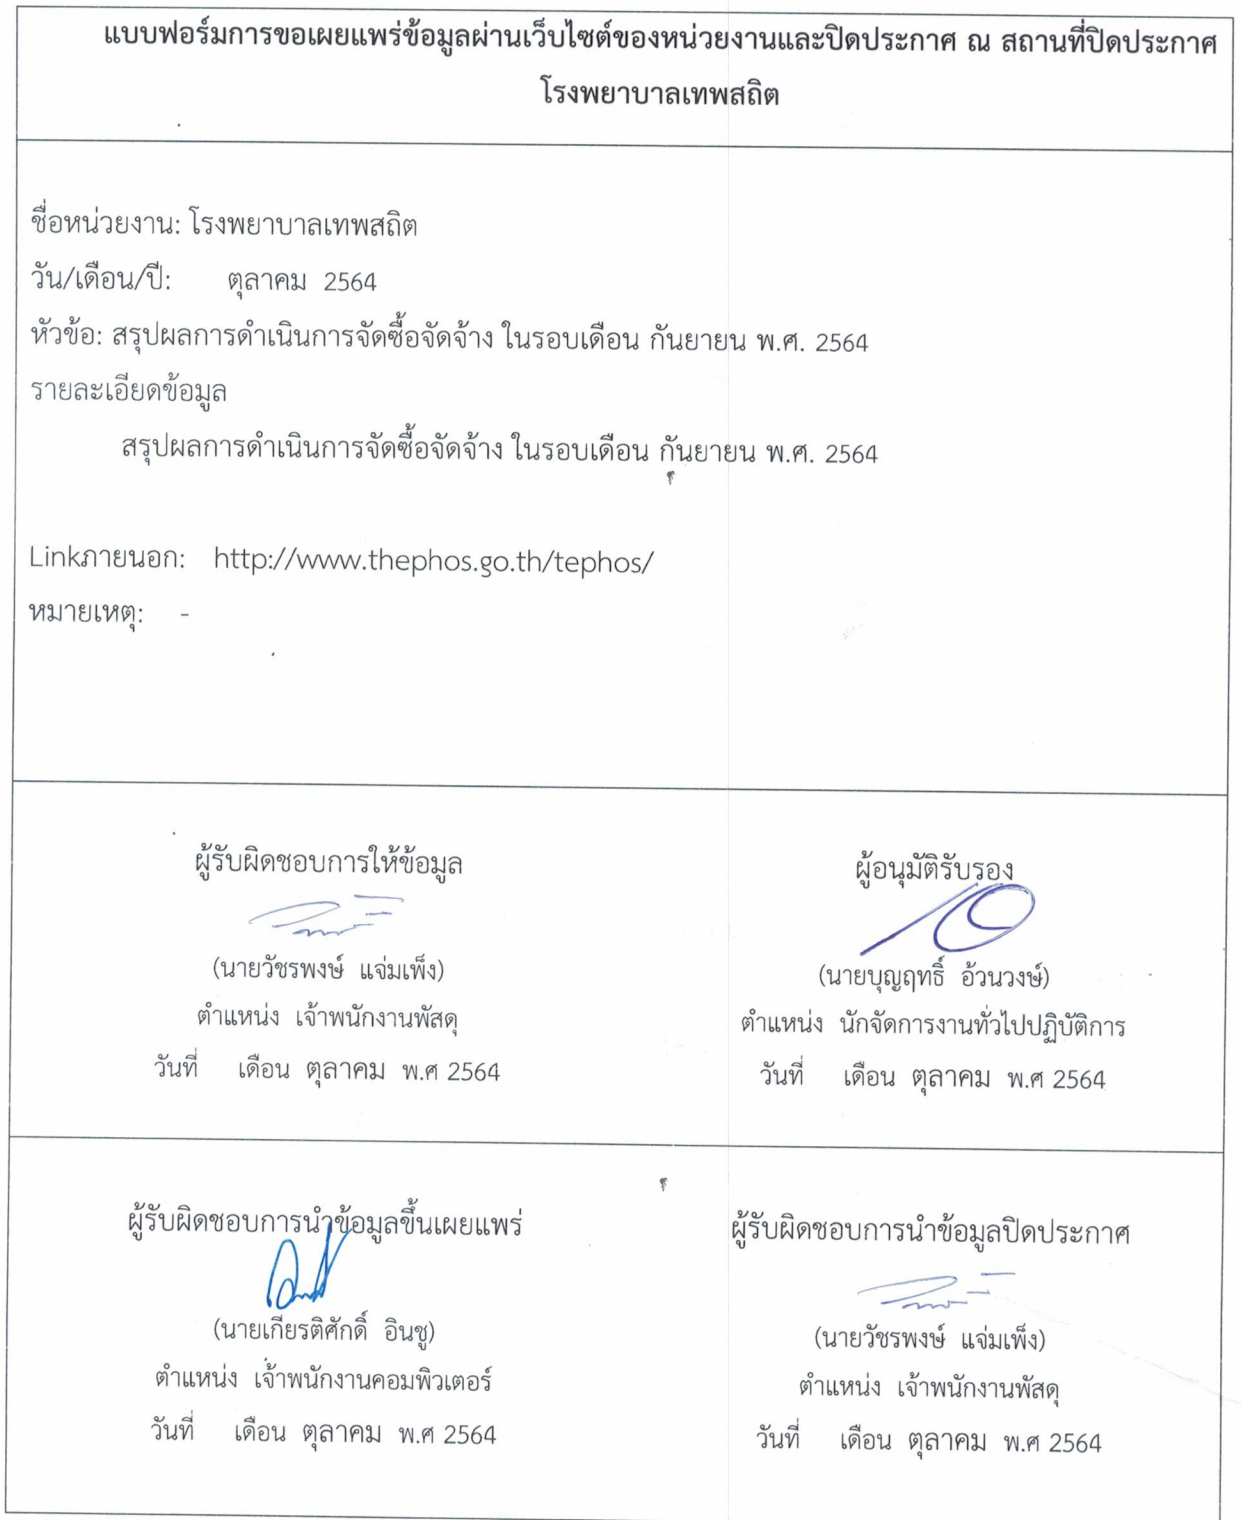 แบบฟอร์มการขอเผยแพร่ข้อมูลผ่านเว็บไซต์ของหน่วยงานและปิดประกาศ ณ สถานที่ปิดประกาศ
โรงพยาบาลเทพสถิต
ชื่อหน่วยงาน: โรงพยาบาลเทพสถิต
วัน/เดือน/ปี: ตุลาคม 2564
หัวข้อ: สรุปผลการดำเนินการจัดซื้อจัดจ้าง ในรอบเดือน กันยายน พ.ศ. 2564
รายละเอียดข้อมูล
สรุปผลการดำเนินการจัดซื้อจัดจ้าง ในรอบเดือน กันยายน พ.ศ. 2564
Linkภายนอก: http://www.thephos.go.th/tephos/
หมายเหตุ: -
ผู้รับผิดชอบการให้ข้อมูล
(นายวัชรพงษ์ แจ่มเพ็ง)
ตำแหน่ง เจ้าพนักงานพัสดุ
วันที่ เดือน ตุลาคม พ.ศ 2564
ผู้อนุมัติรับรอง
(นายบุญฤทธิ์ อ้วนวงษ์)
ตำแหน่ง นักจัดการงานทั่วไปปฏิบัติการ
วันที่ เดือน ตุลาคม พ.ศ 2564
ผู้รับผิดชอบการนำข้อมูลขึ้นเผยแพร่
(นายเกียรติศักดิ์ อินชู)
ตำแหน่ง เจ้าพนักงานคอมพิวเตอร์
วันที่ เดือน ตุลาคม พ.ศ 2564
ผู้รับผิดชอบการนำข้อมูลปิดประกาศ
(นายวัชรพงษ์ แจ่มเพ็ง)
ตำแหน่ง เจ้าพนักงานพัสดุ
วันที่ เดือน ตุลาคม พ.ศ 2564